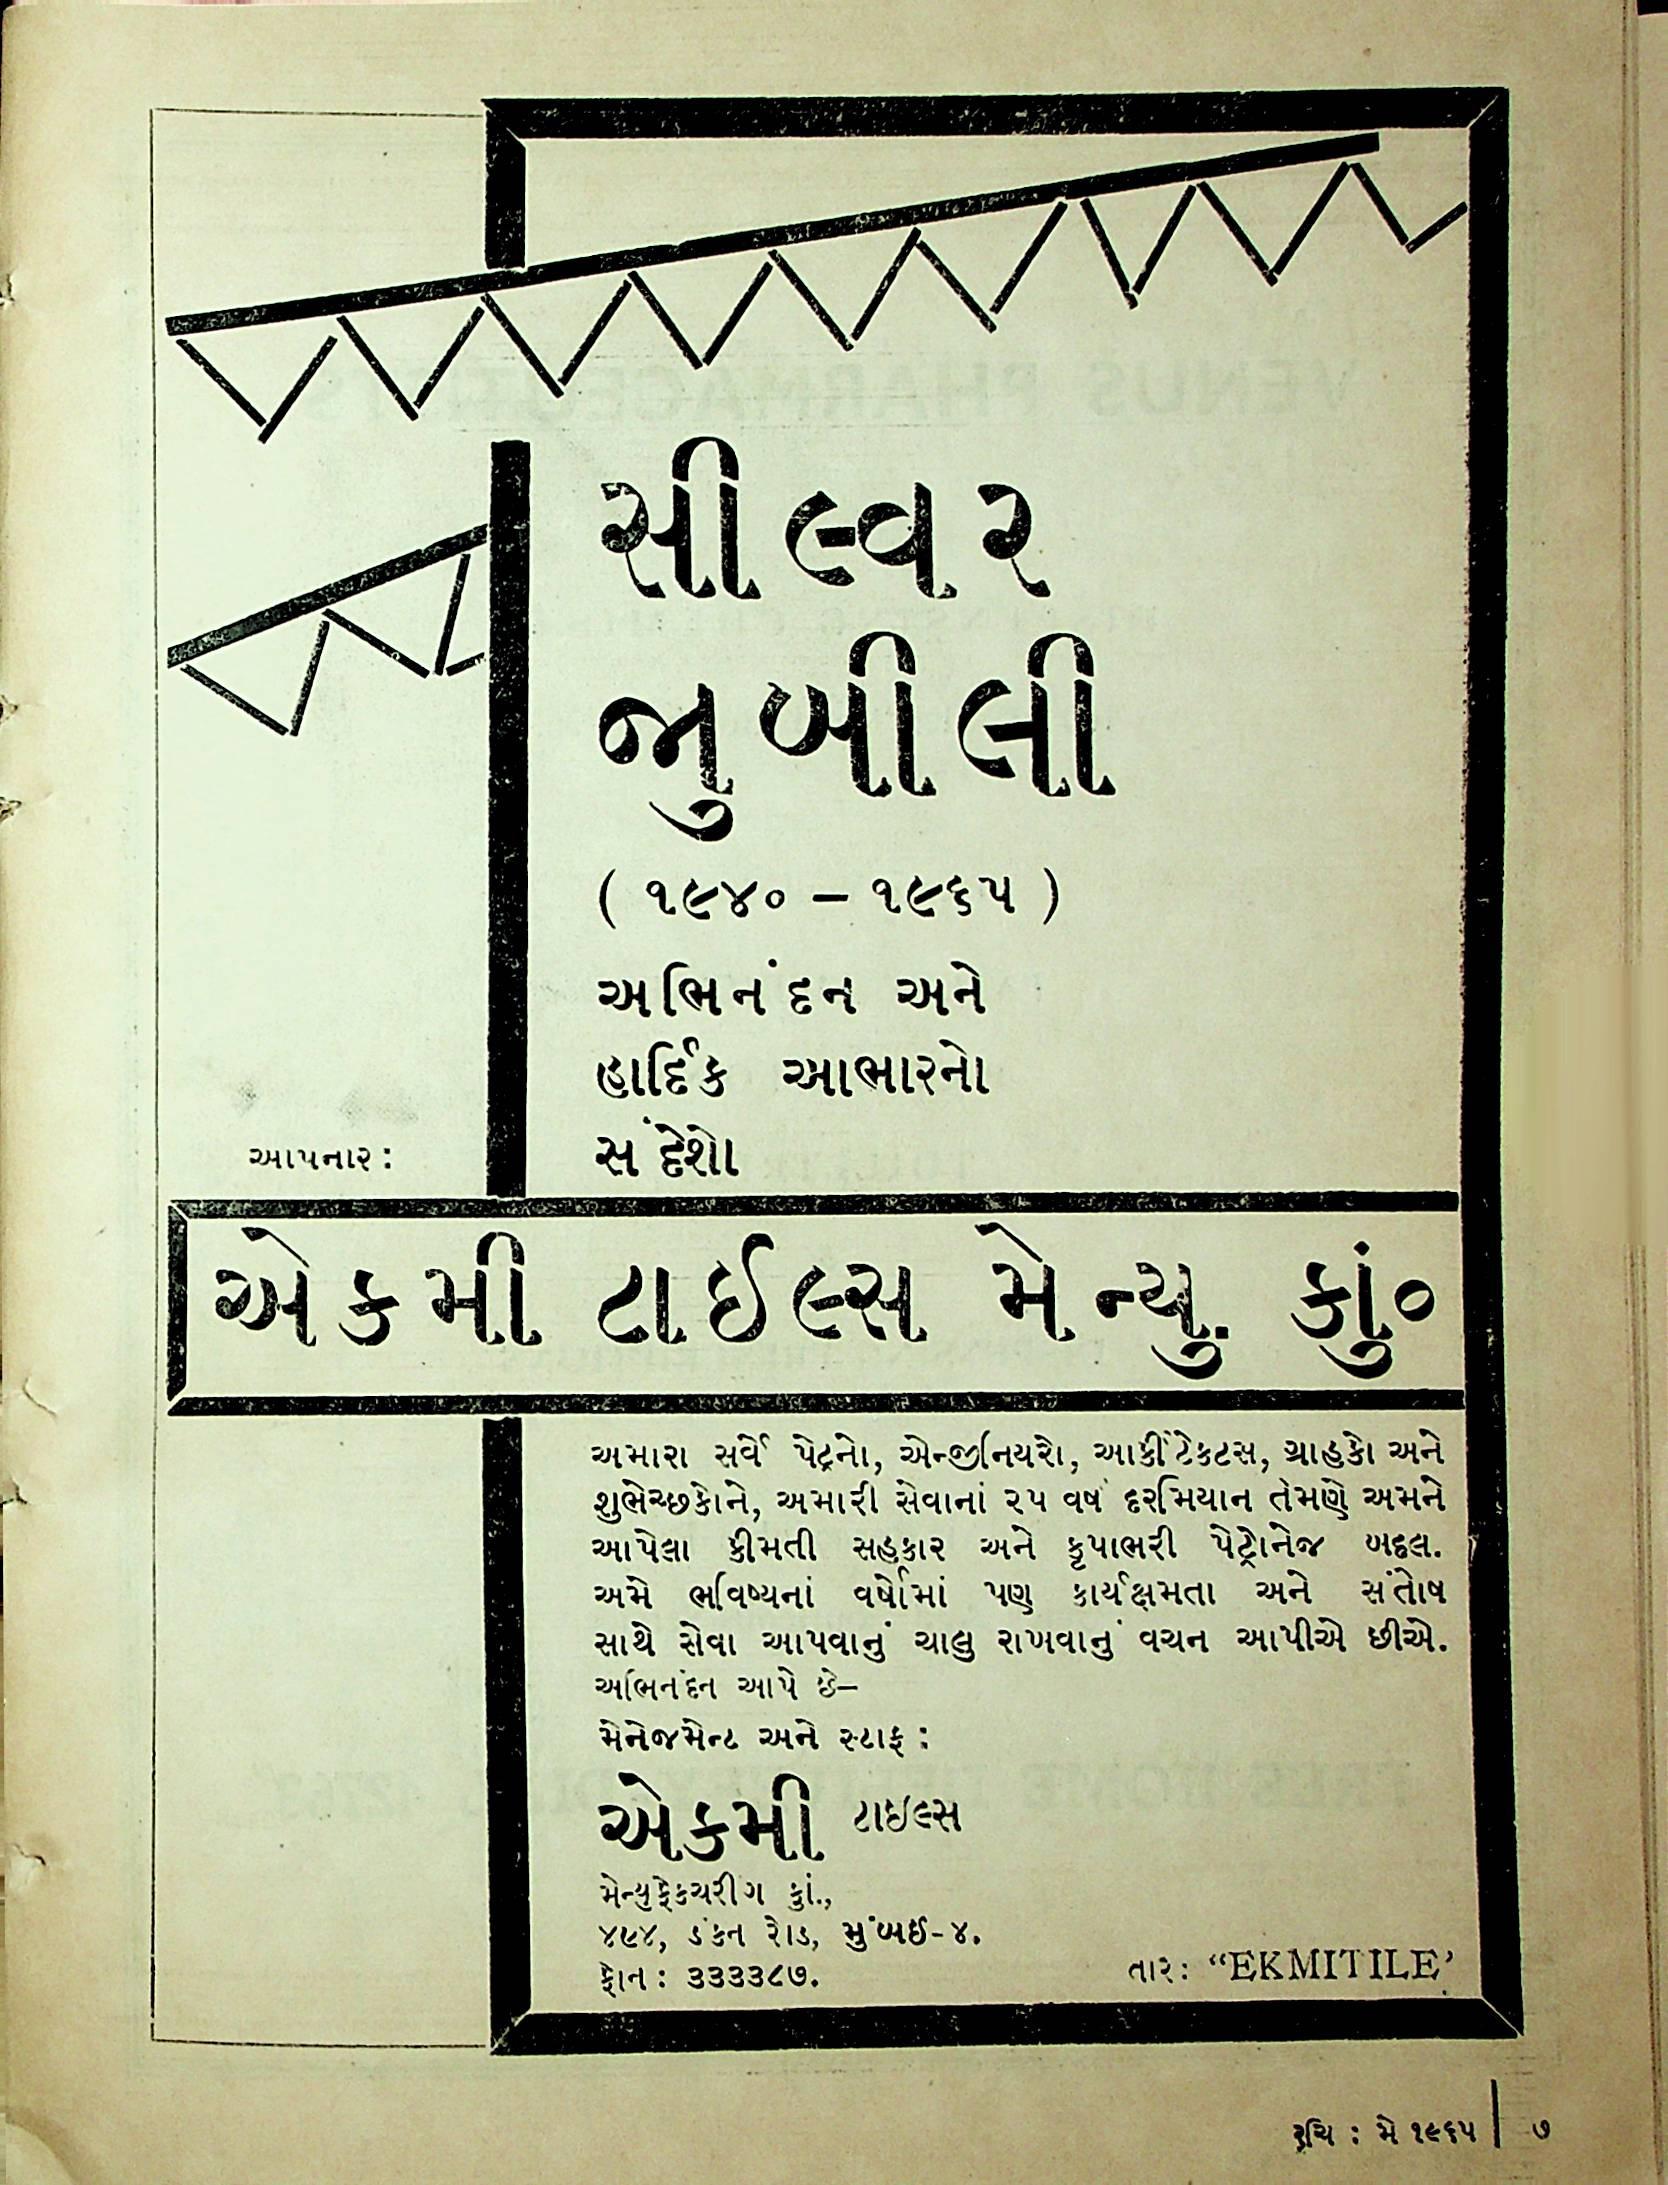 સીલ્વર
જુબીલી
( ૧૯૪૦ – ૧૯૬૫ )
અભિનંદન અને
હાર્દિક આભારનો
સંદેશો
આપનાર :
એકમી ટાઈલ્સ મેન્યુ. કું૦
અમારા સર્વે પેટ્રનો, એન્જીનિયરો, આર્કીટેકટસ, ગ્રાહકો અને
શુભેચ્છકોને, અમારી સેવાનાં ૨૫ વર્ષ દરમિયાન તેમણે અમને
આપેલા કીમતી સહકાર અને કૃપાભરી પેટ્રોનેજ બદ્દલ.
અમે ભવિષ્યનાં વર્ષોમાં પણ કાર્યક્ષમતા અને સંતોષ
સાથે સેવા આપવાનું ચાલુ રાખવાનું વચન આપીએ છીએ.
અભિનંદન આપે છે–
મેનેજમેન્ટ અને સ્ટાફ :
એકમી ટાઇલ્સ
મેન્યુફેકચરીંગ કું.,
૪૯૪, ડંકન રોડ, મુંબઈ-૪.
ફોન : ૩૩૩૩૮૭.
તાર : “EKMITILE’
રુચિ : મે ૧૯૬૫ | ૭